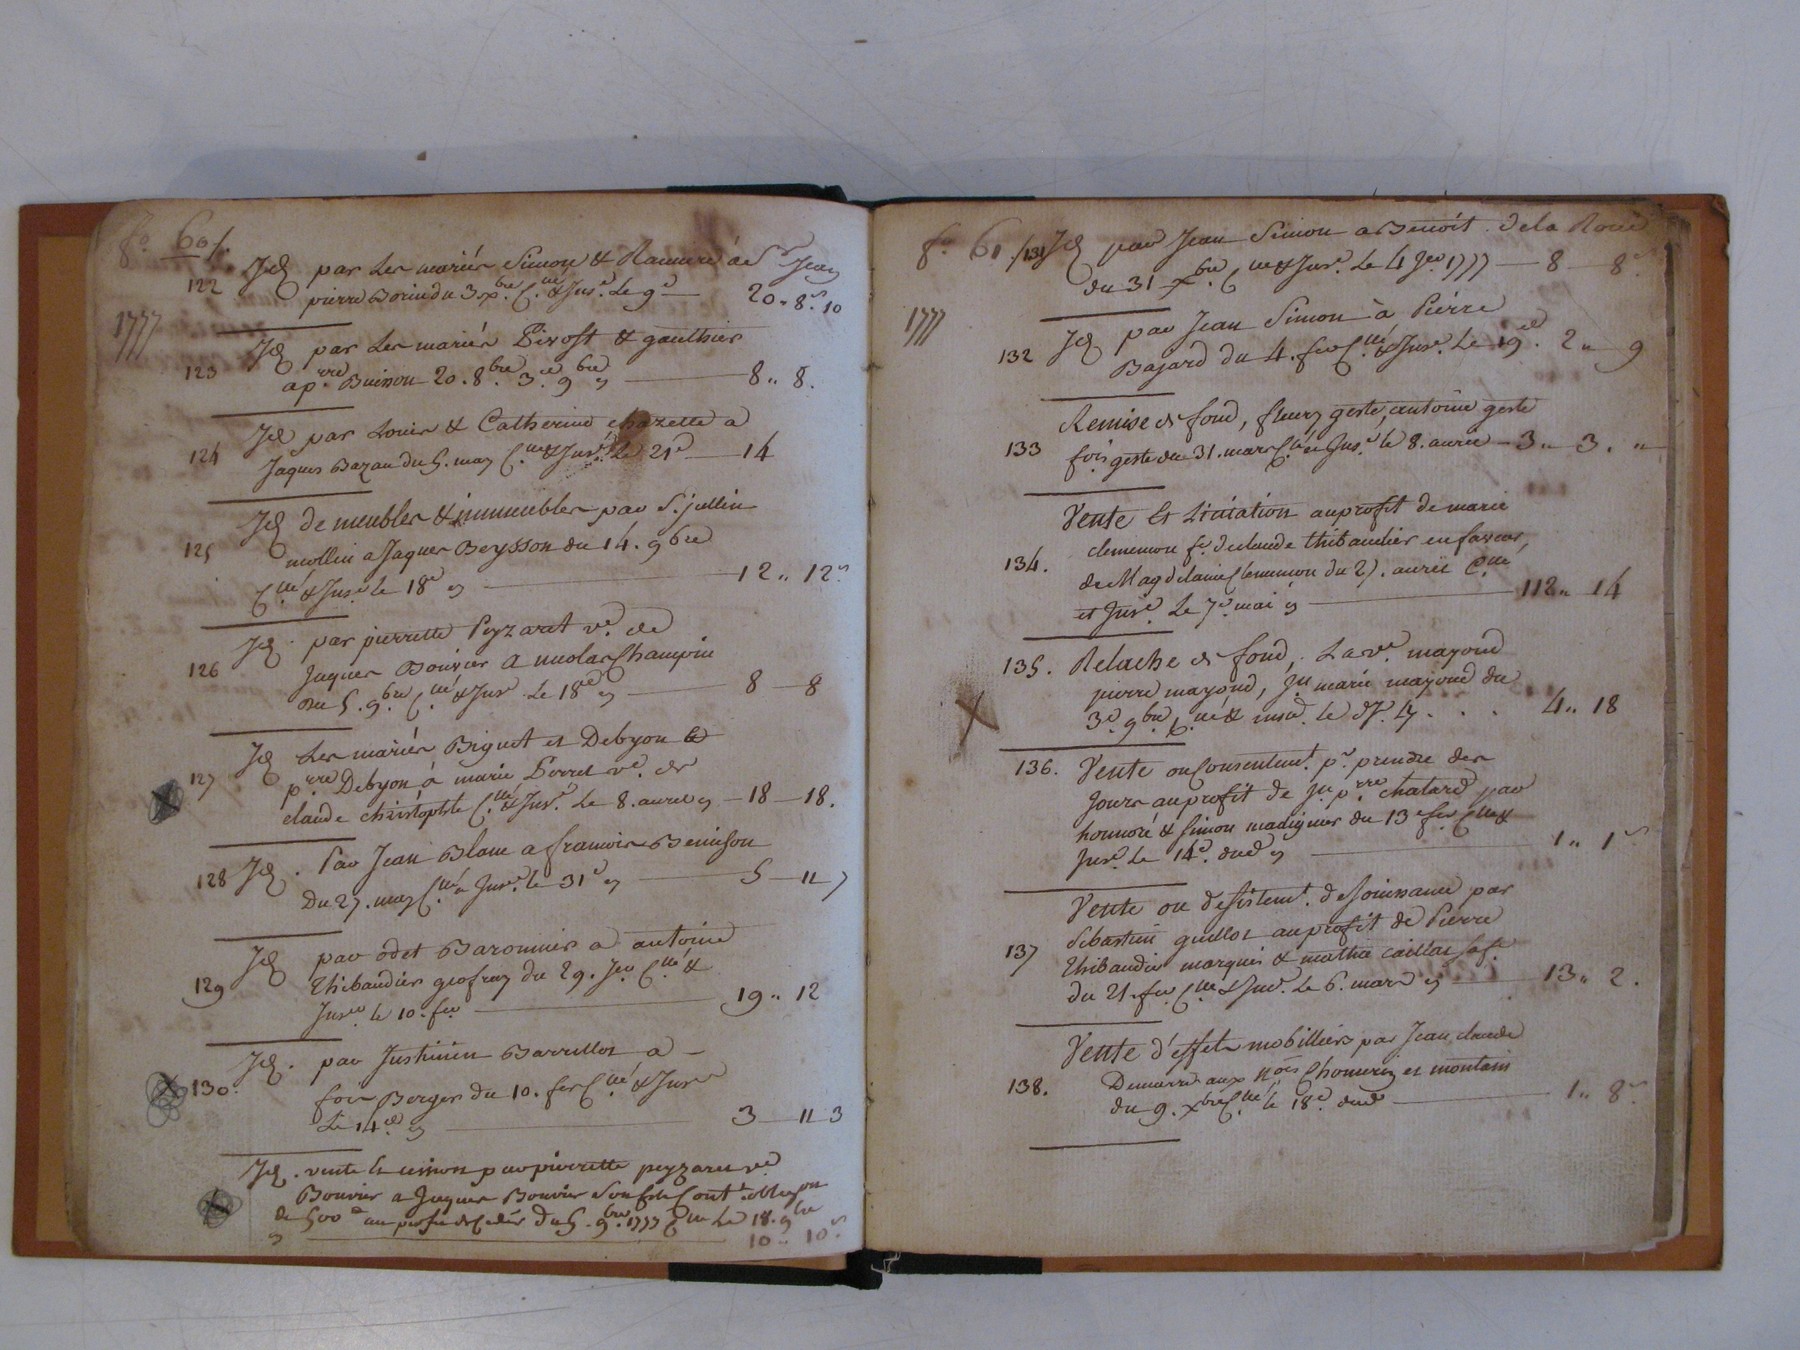 fo. 60 /.
1777
122 Id par les mariés Simon & à Sr Jean
pierre Borin du 3 xbre C. & Insé. le 9e — 20 „ 8 s 10
123 Id par les mariés Pivost & gauthier
a prre Buisson 20. 8bre 3e. 9bre — 8 „ 8.
124 Id par Louis & Catherine chazette a
Jaques Bazan du 5. may C. & Insé. le 21e — 14
125 Id de meubles & immeubles par S. jullien
mollin a Jaques Beysson du 14. 9bre
C. & Insé. le 18e — 12 „ 12 s
126 Id. par pierrette Peyzaret ve. de
Jaques Bouvier a nicolas Champin
du 5. 9bre C. & Insé le 18e — 8 — 8
127 Id Les mariés Biguet et Debyon &
prre Debyon à marie Perret ve. de
claude christophle C. & Insé. le 8. avril — 18 — 18.
128 Id. Par Jean Blanc a francois Benisson
Du 27. may C. & Insé. le 31e — 5 — 11 7
129 Id par odet Baronnier a antoine
Thibaudier geofray du 29. Jer C. &
Insé le 10. fer — 19 „ 12
130. Id. par Justinien Barrellon a –
fois Berger du 10. fer C. & Insé
Le 14e — 3 — 11 3
Id. vente & cession par pierrette peyzaret ve
Bouvier a Jaques Bouvier son fils
de 500 au profit de Du 5. 9bre. 1777 C. Le 18. 9bre
10 „ 10 s
fo. 61 /.
1777
131 Id par Jean Simon a Benoit de la Roue
du 31 xbre C. & Insé. Le 4 Jer 1777 — 8 — 8 s
132 Id par Jean Simon à Pierre
Bajard du 4. fer C. & Insé. Le 19e. 2 „ 9
133 Remise de fond, fleury geste, antoine geste
fois geste du 31. mars C. et Insé. le 8. avril — 3 „ 3. „
134. Vente Et Licitation au profit de marie
clemenson fe. de claude thibaudier en faveur,
de Magdelaine Clemenson du 27. avril C.
et Insé. Le 7e. mai — 112 „ 14
135. Relache de fond, La ve. mayoud
pierre mayoud, Jn marie mayoud du
3e. 9bre C. & insé. le . . . 4 „ 18
136. Vente ou Consentemt. pr. prendre des
Jours au profit de Jn. prre chatard par
honnoré & Simon madignier du 13 fer C. &
Insé Le 14e. dud — 1 „ 1 s
137 Vente ou desistemt. de Jouissance par
Sebastien guillot au profit de Pierre
Thibaudier marquis & mathie caillat sa fe.
du 21. fer C. & Insé. Le 6. mars — 13 „ 2.
138. Vente d'effets mobilliers par Jean claude
aux Chomerez et montain
du 9. xbre C. le 18e. dud — 1 „ 8 s